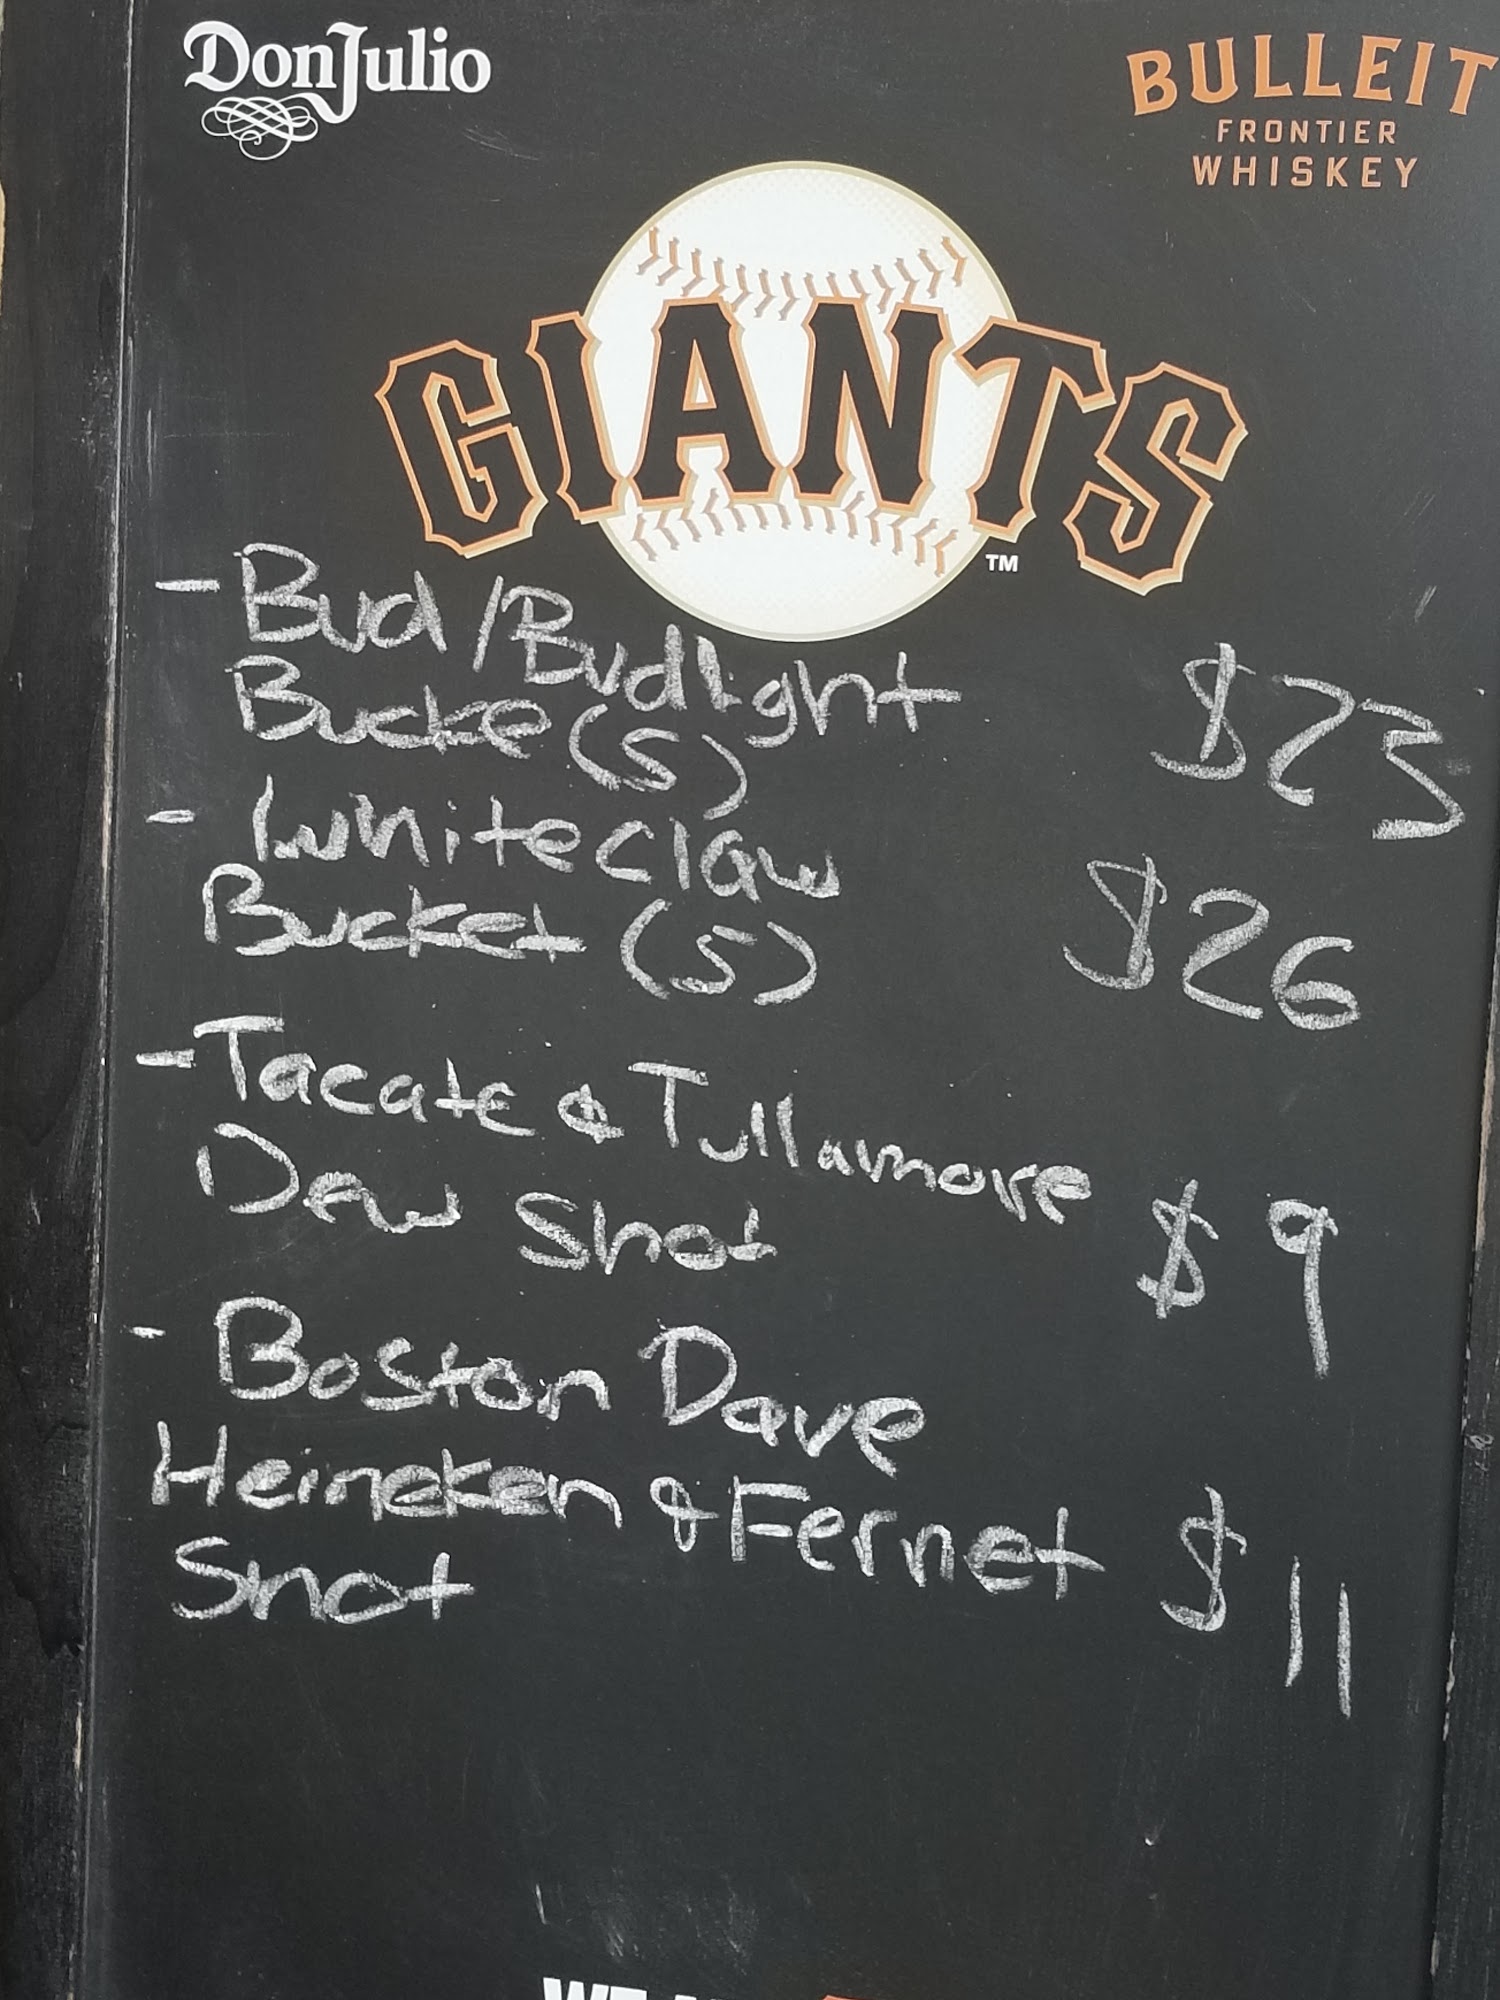 Don Julio
BULLEIT
FRONTIER
WHISKEY
GIANTS
TM
- Bud / Budlight
Bucke (5) $23
- Whiteclaw
Bucket (5) $26
- Tacate & Tullamore
Dew Shot $9
- Boston Dave
Heineken & Fernet $11
Shot